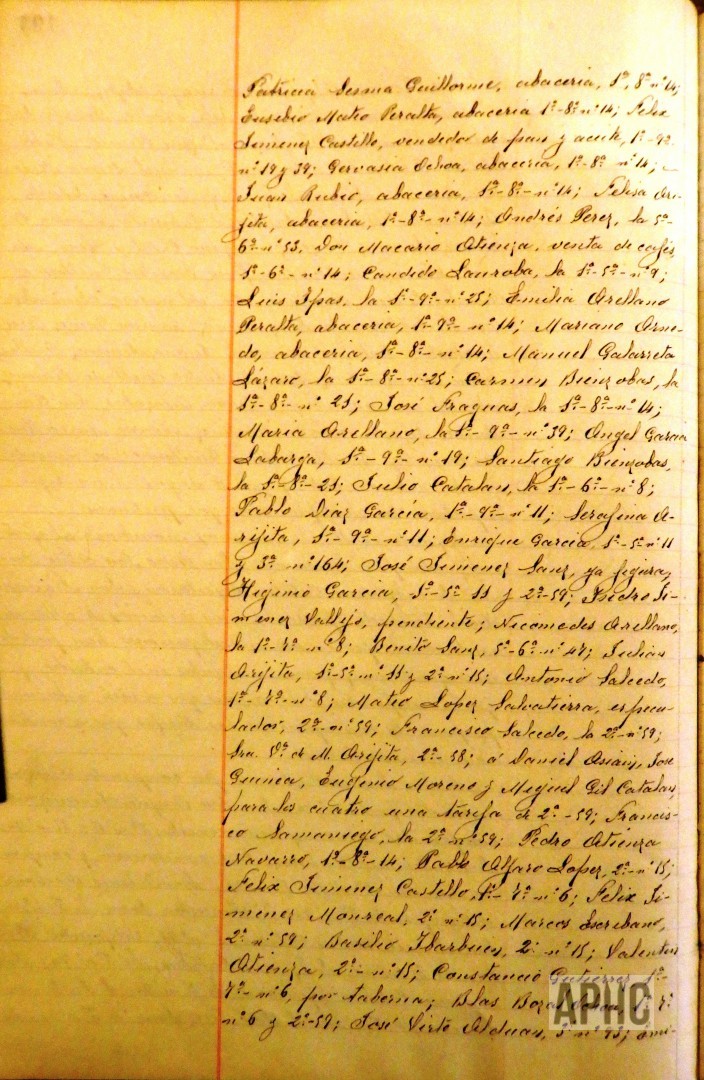 Patricia Sesma Guillorme, abaceria, 1ª, 8ª nº 14;
Eusebio Mateo Peralta, abaceria 1ª-8ª nº 14; Felix
Jimenez Castillo, vendedor de pan y aceite, 1ª-9ª
nº 19 y 39; Gervasia Ochoa, abaceria, 1ª-8ª nº 14;
Juan Rubio, abaceria, 1ª-8ª-nº 14; Felisa Ari-
jita, abaceria, 1ª-8ª-nº 14; Andrés Perez, la 5ª-
6ª-nº 53, Don Macario Atienza, venta de cafés,
1ª-6ª-nº 14; Candido Lauroba, la 1ª-5ª-nº 9;
Luis Ipas, la 1ª-9ª-nº 25; Emilia Arellano
Peralta, abaceria, 1ª-9ª-nº 14; Mariano Arne-
do, abaceria, 1ª-8ª-nº 14; Manuel Galarreta
Lázaro, la 1ª-8ª-nº 25; Carmen Bienzobas, la
1ª-8ª-nº 21; José Fraguas, la 1ª-8ª-nº 14;
Maria Arellano, la 1ª-9ª-nº 39; Angel Garcia
Labarga, 1ª-9ª-nº 19; Santiago Bienzobas,
la 1ª-8ª-21; Julio Catalan, la 1ª-6ª-nº 8;
Pablo Diaz Garcia, 1ª-9ª-nº 11; Serafina A-
rijita, 1ª-9ª-nº 11; Enrique Garcia, 1ª-5ª nº 11
y 3ª nº 164; José Jimenez Sanz, ya figura;
Higinio Garcia, 1ª-5ª 11 y 2ª-59; Isidro Ji-
menez Vallejo, pendiente; Nicomedes Arellano,
la 1ª-7ª nº 8; Benito Sanz, 5ª-6ª-nº 47; Julian
Arijita, 1ª-5ª nº 11 y 2ª nº 15; Antonio Salcedo,
1ª-7ª-nº 8; Mateo Lopez Salvatierra, especu-
lador, 2ª-nº 59; Francisco Salcedo, la 2ª-nº 59;
Sra. Vda de M. Arijita, 2ª-58; á Daniel Asiain, José
Guinea, Eugenio Moreno y Miguel Gil Catalan,
para los cuatro una tarifa de 2ª-59; Francis-
co Samaniego, la 2ª nº 59; Pedro Atienza
Navarro, 1ª-8ª-14; Pablo Alfaro Lopez, 2ª-nº 15;
Felix Jimenez Castillo, 1ª-7ª-nº 6; Felix Ji-
menez Monreal, 2ª nº 15; Marcos Escribano,
2ª nº 59; Basilio Ibarbuen, 2ª nº 15; Valentin
Atienza, 2ª-nº 15; Constancio Gutierrez 1ª-
7ª-nº 6, por taberna; Blas 1ª 7ª
nº 6 y 2ª-59; José Virto Alduan,
APHC